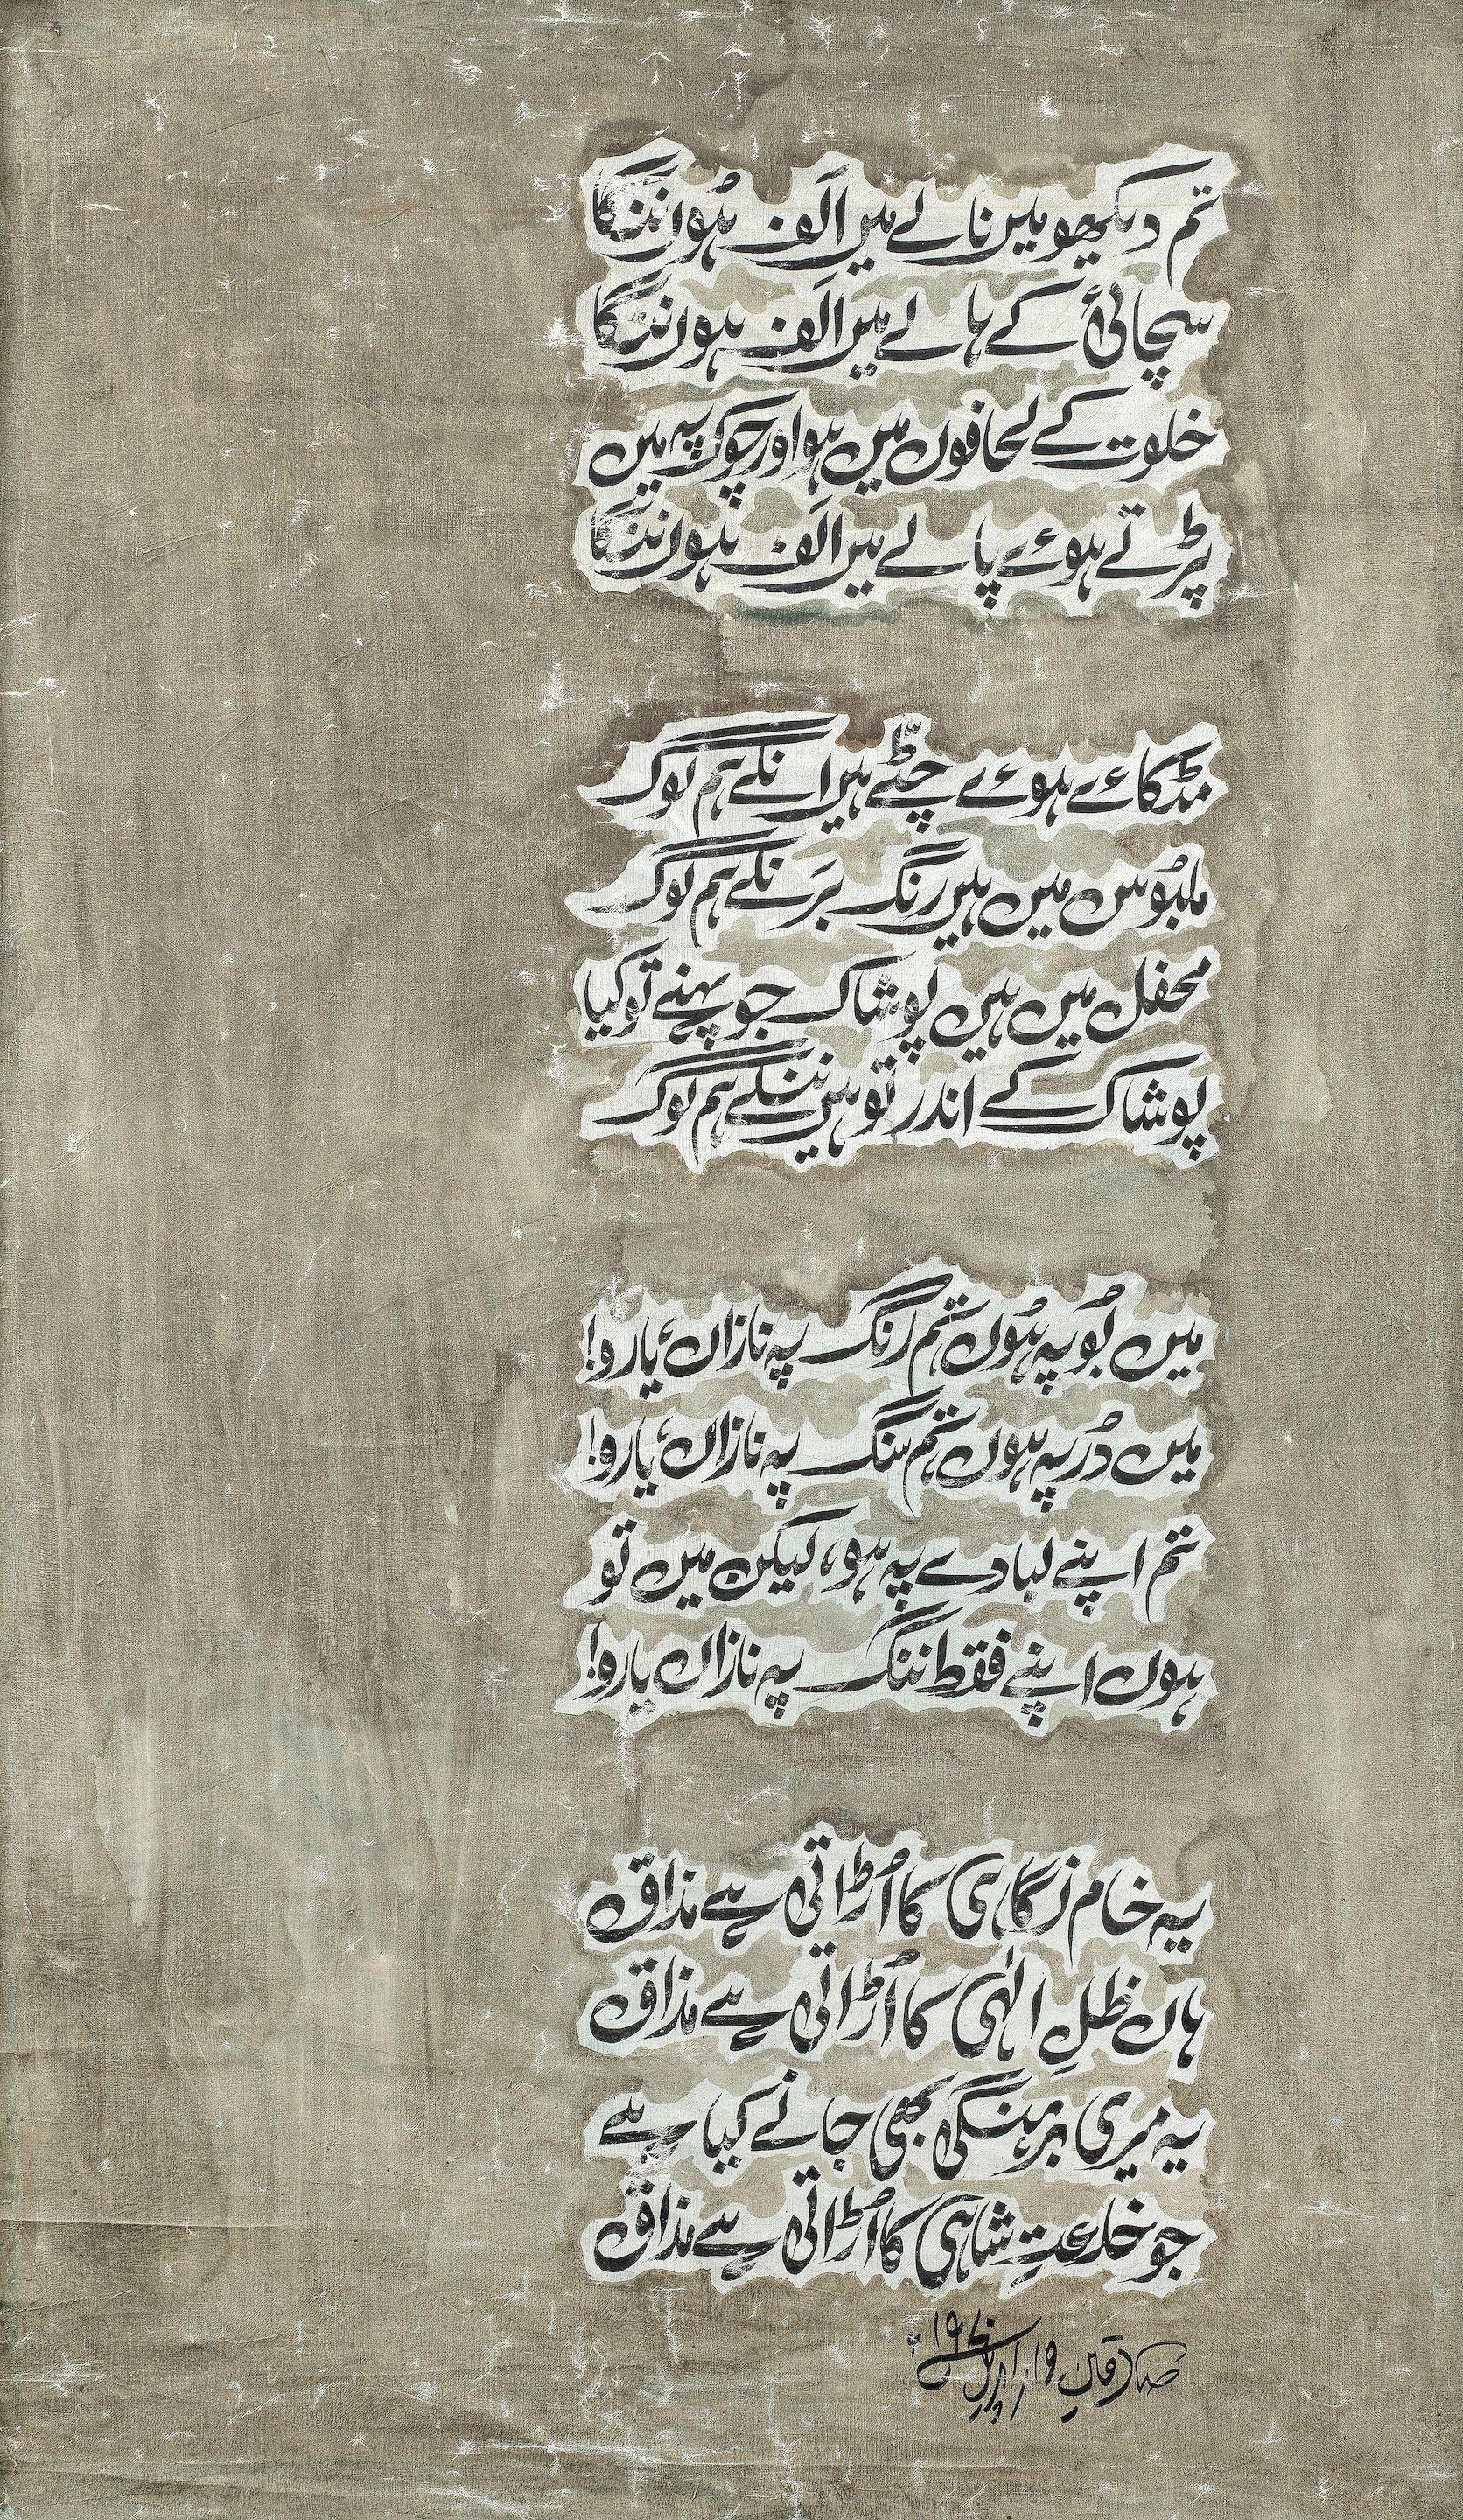 تم دیکھو میں نالے میں اَلف ہُوں ننگا
سچائی کے ہالے میں اَلف ہوں ننگا
خلوت کے لحافوں میں ہو اور چوک پہ میں
پڑتے ہوئے پالے میں اَلف ہوں ننگا
مٹکائے ہوئے چٹے ہیں نکلے ہم لوگ
ملبُوس میں ہیں رنگ بَرنگے ہم لوگ
محفل میں ہیں پوشاک جو پہنے تو کیا
پوشاک کے اندر تو ہیں ننگے ہم لوگ
میں بُو پہ ہُوں تم رنگ پہ نازاں، یارو!
میں دُر پہ ہوں تم سنگ پہ نازاں، یارو!
تم اپنے لبادے پہ ہو، لیکن میں تو
ہوں اپنے فقط ننگ پہ نازاں یارو!
یہ خام نگاہی کا اُڑاتی ہے مذاق
ہاں ظلِ الٰہی کا اُڑاتی ہے مذاق
یہ میری برہنگی بھی جانے کیا ہے
جو خلعتِ شاہی کا اُڑاتی ہے مذاق
صادقین ۱۹ اپریل